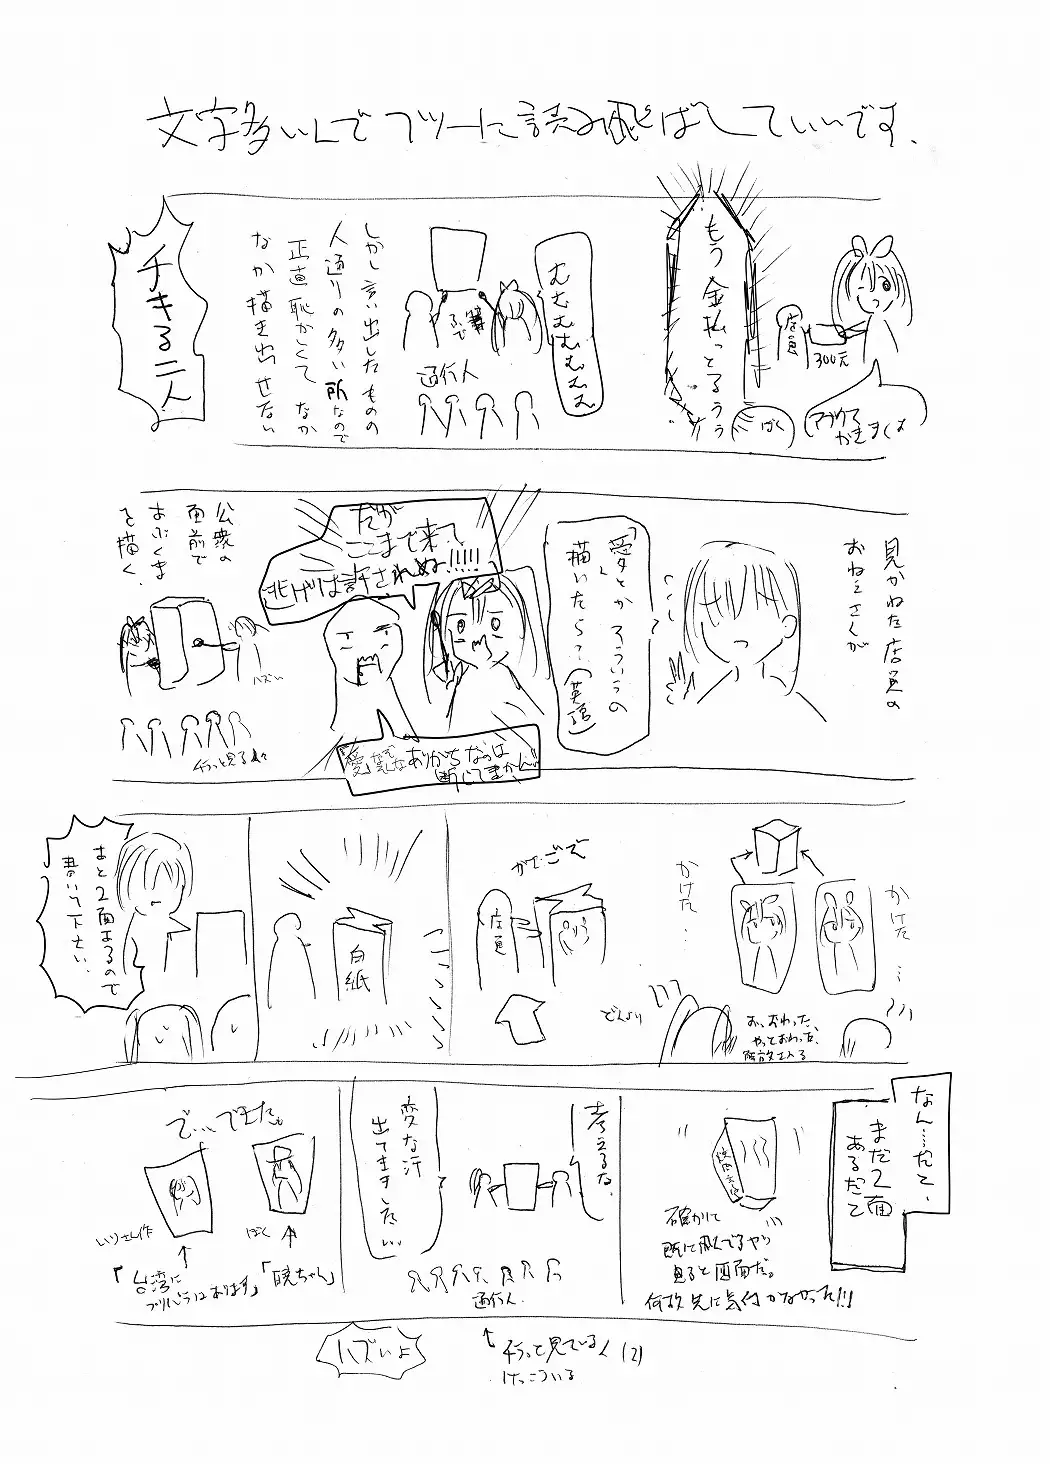 文字多いんでフツーに読み飛ばしていいです.
もう金払っとるぅぅ
店員
300元
ぼく
むむむむむむ
通行人
しかし言い出したものの
人通りの多い所なので
正直恥かしくてなか
なか描き出せない
チキる二人
見かねた店員の
おねえさんが
「愛」とかそういうの
描いたら?(英語)
だが
ここまで来て
逃げりは許されぬ!!!!!
「愛」なんて
ありがちなのは
断じてまかん!!
公衆の
面前で
まぶくま
を描く.
ハズい
かけた…
かけた…
お、おわった、
やっておわった、
どんより
がでごで
店員
白紙
あと2面あるので
書いて下さい.
なん……だと、
まだ2面
あるだと
確かに
見ると四面だ。
何故先に気付かなかった!!!
考えるな.
変な汗
出てきました…
通行人
で…できた。
ぼく
「暁ちゃん」
「台湾に
ハズいよ
けっこういる